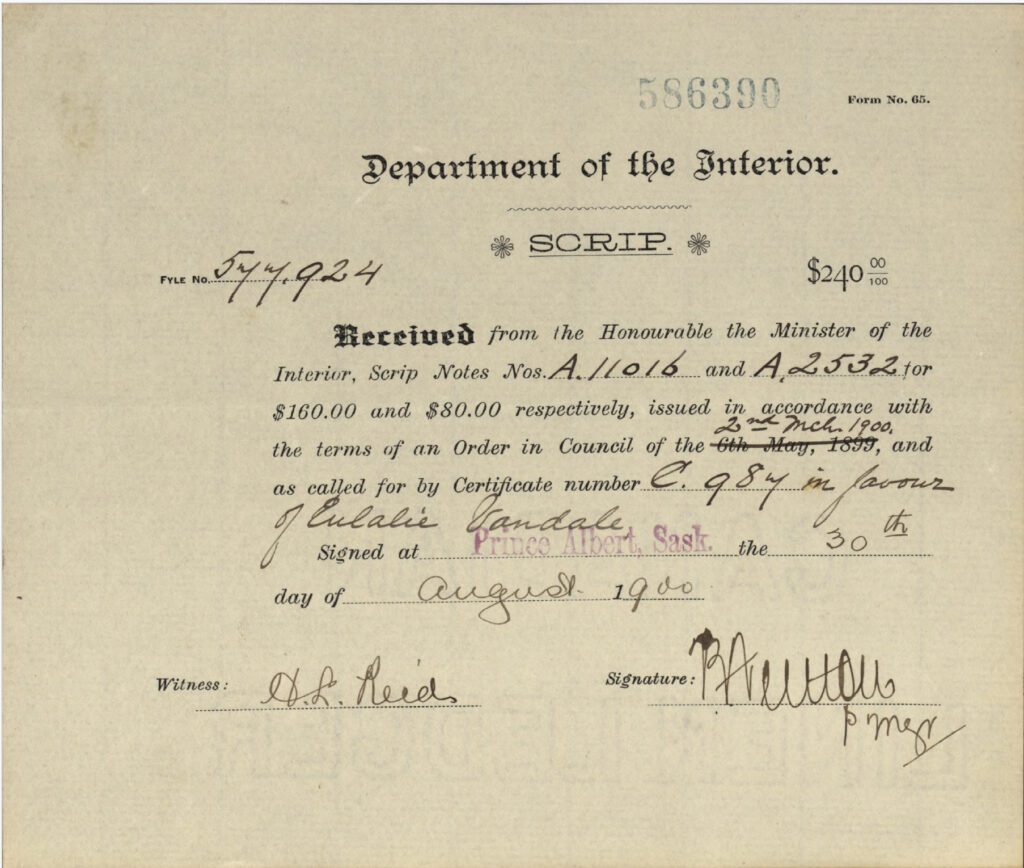 586390
Form No. 65.
Department of the Interior.
SCRIP.
FYLE No. 577.924
$240 00/100
Received from the Honourable the Minister of the
Interior, Scrip Notes Nos. A. 11016 and A. 2532 for
$160.00 and $80.00 respectively, issued in accordance with
2nd Mch. 1900.
the terms of an Order in Council of the 6th May, 1899, and
as called for by Certificate number C. 987 in favour
of Eulalie Vandale
Signed at Prince Albert, Sask. the 30th
day of August 1900
Witness: H. L. Reid
Signature:
p Mgr